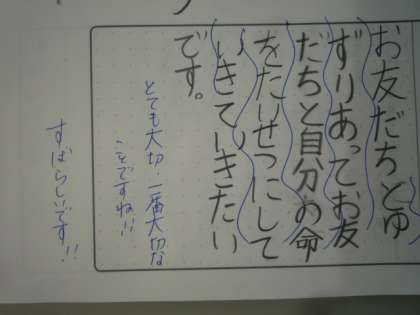 お友だちとゆ
ずりあってお友
だちと自分の命
をたいせつにして
いきていきたい
です。
とても大切・一番大切な
ことですね!!
すばらしいです!!